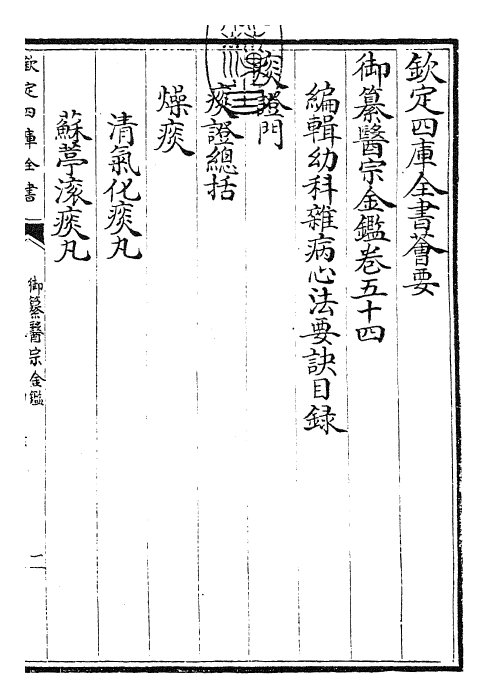 欽定四庫全書薈要
御纂醫宗金鑑卷五十四
編輯幼科雜病心法要訣目録
痰證門
痰證總括
燥痰
清氣化痰丸
蘇葶滚痰丸
欽定四庫全書
御纂醫宗金鑑